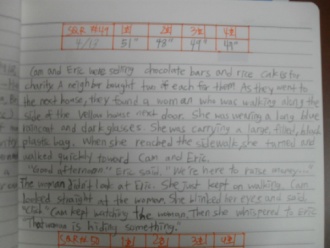 1회 2회 3회 4회
51" 48" 49" 49"
Cam and Eric were selling chocolate bars and rice cakes for
charity. A neighbor bought two of each for them. As they went to
the next house, they found a woman who was walking along the
side of the yellow house next door. She was wearing a long blue
raincoat and dark glasses. She was carrying a large, filled, black
plastic bag. When she reached the sidewalk, she turned and
walked quickly toward Cam and Eric.
"Good afternoon," Eric said. "We're here to raise money..."
The woman didn't look at Eric. She just kept on walking. Cam
looked straight at the woman. She blinked her eyes and said,
"Click." Cam kept watching the woman. Then she whispered to Eric
"That woman is hiding something."
1회 2회 3회 4회